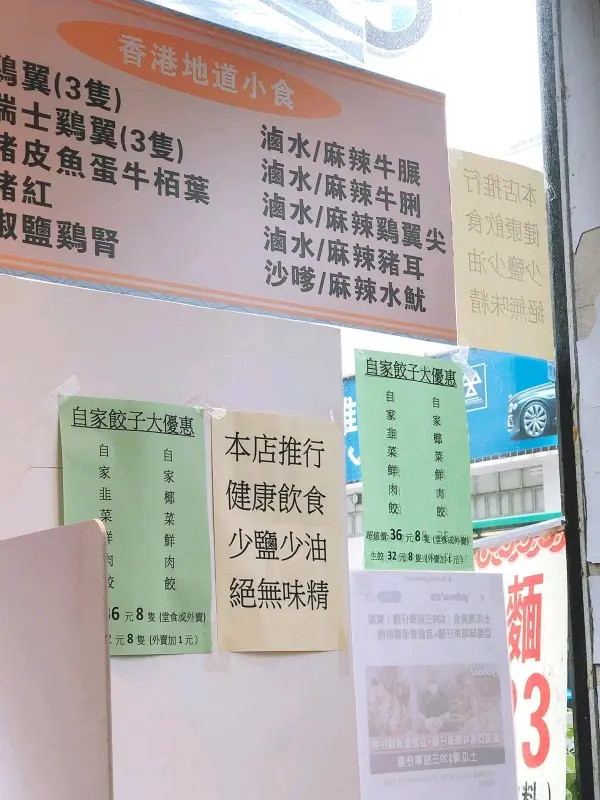 香港地道小食
鷄翼(3隻)
瑞士鷄翼(3隻)
豬皮魚蛋牛栢葉
豬紅
椒鹽鷄腎
滷水/麻辣牛𦟌
滷水/麻辣牛脷
滷水/麻辣鷄翼尖
滷水/麻辣豬耳
沙嗲/麻辣水魷
本店推行
健康飲食
少鹽少油
絕無味精
自家餃子大優惠
自家韭菜鮮肉餃
自家椰菜鮮肉餃
6元8隻(堂食或外賣)
元8隻(外賣加1元)
本店推行
健康飲食
少鹽少油
絕無味精
自家餃子大優惠
自家韭菜鮮肉餃
自家椰菜鮮肉餃
超值價:36元8隻(堂食或外賣)
生餃:32元8隻(外賣加1元)
yahoo!
麵
3
料